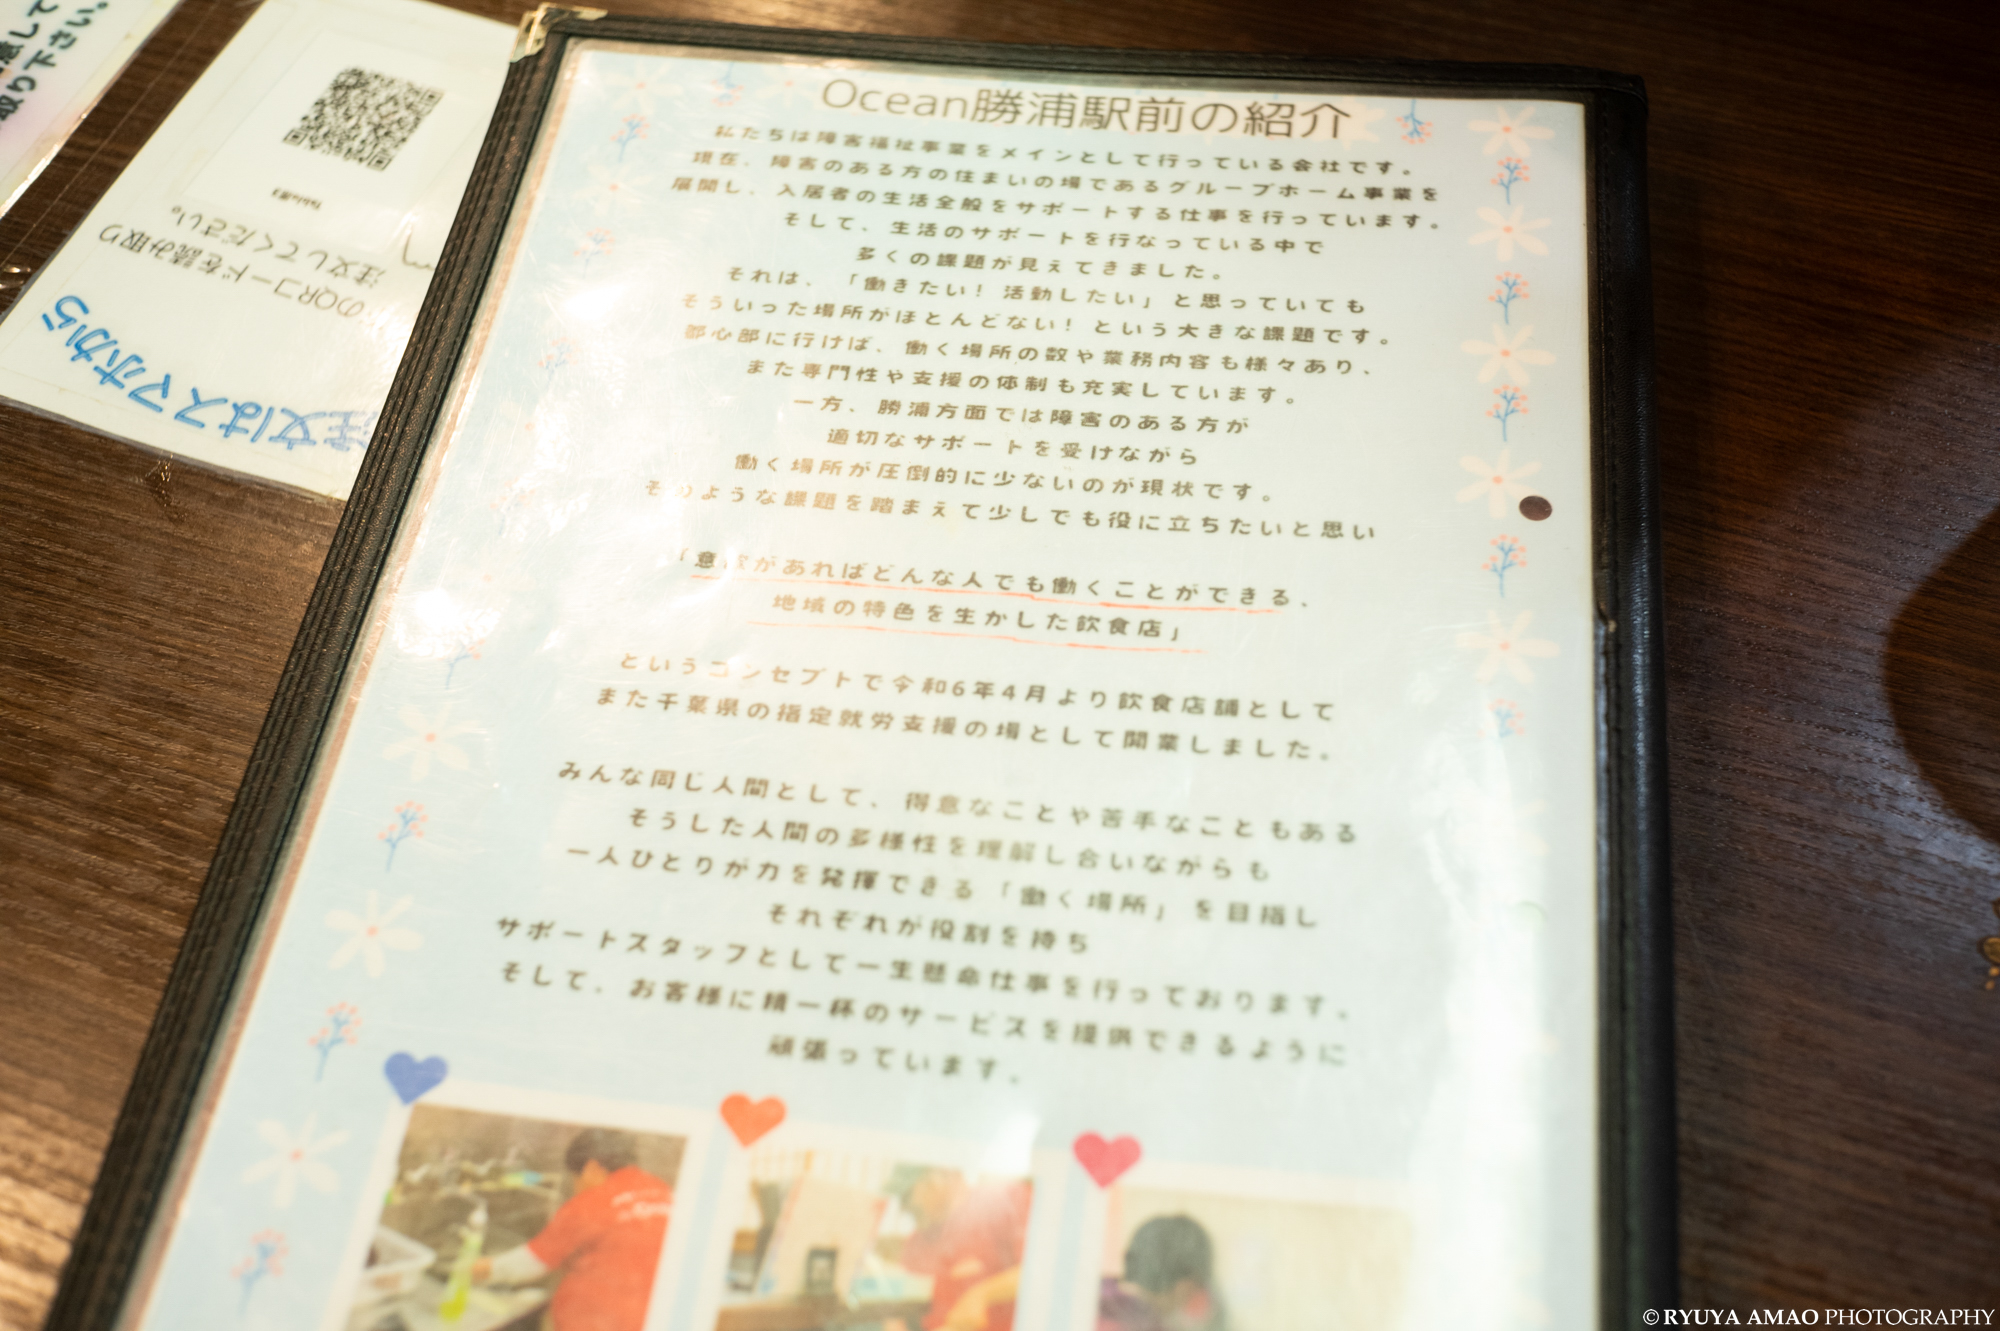 Ocean勝浦駅前の紹介
私たちは障害福祉事業をメインとして行っている会社です。
現在、障害のある方の住まいの場であるグループホーム事業を
展開し、入居者の生活全般をサポートする仕事を行っています。
そして、生活のサポートを行なっている中で
多くの課題が見えてきました。
それは、「働きたい！活動したい」と思っていても
そういった場所がほとんどない！という大きな課題です。
都心部に行けば、働く場所の数や業務内容も様々あり、
また専門性や支援の体制も充実しています。
一方、勝浦方面では障害のある方が
適切なサポートを受けながら
働く場所が圧倒的に少ないのが現状です。
そのような課題を踏まえて少しでも役に立ちたいと思い
「意欲があればどんな人でも働くことができる、
地域の特色を生かした飲食店」
というコンセプトで令和6年4月より飲食店舗として
また千葉県の指定就労支援の場として開業しました。
みんな同じ人間として、得意なことや苦手なこともある
そうした人間の多様性を理解し合いながらも
一人ひとりが力を発揮できる「働く場所」を目指し
それぞれが役割を持ち
サポートスタッフとして一生懸命仕事を行っております。
そして、お客様に精一杯のサービスを提供できるように
頑張っています。
注文はスマホから
のQRコードを読み取り
注文してください。
取り下さい。
© RYUYA AMAO PHOTOGRAPHY